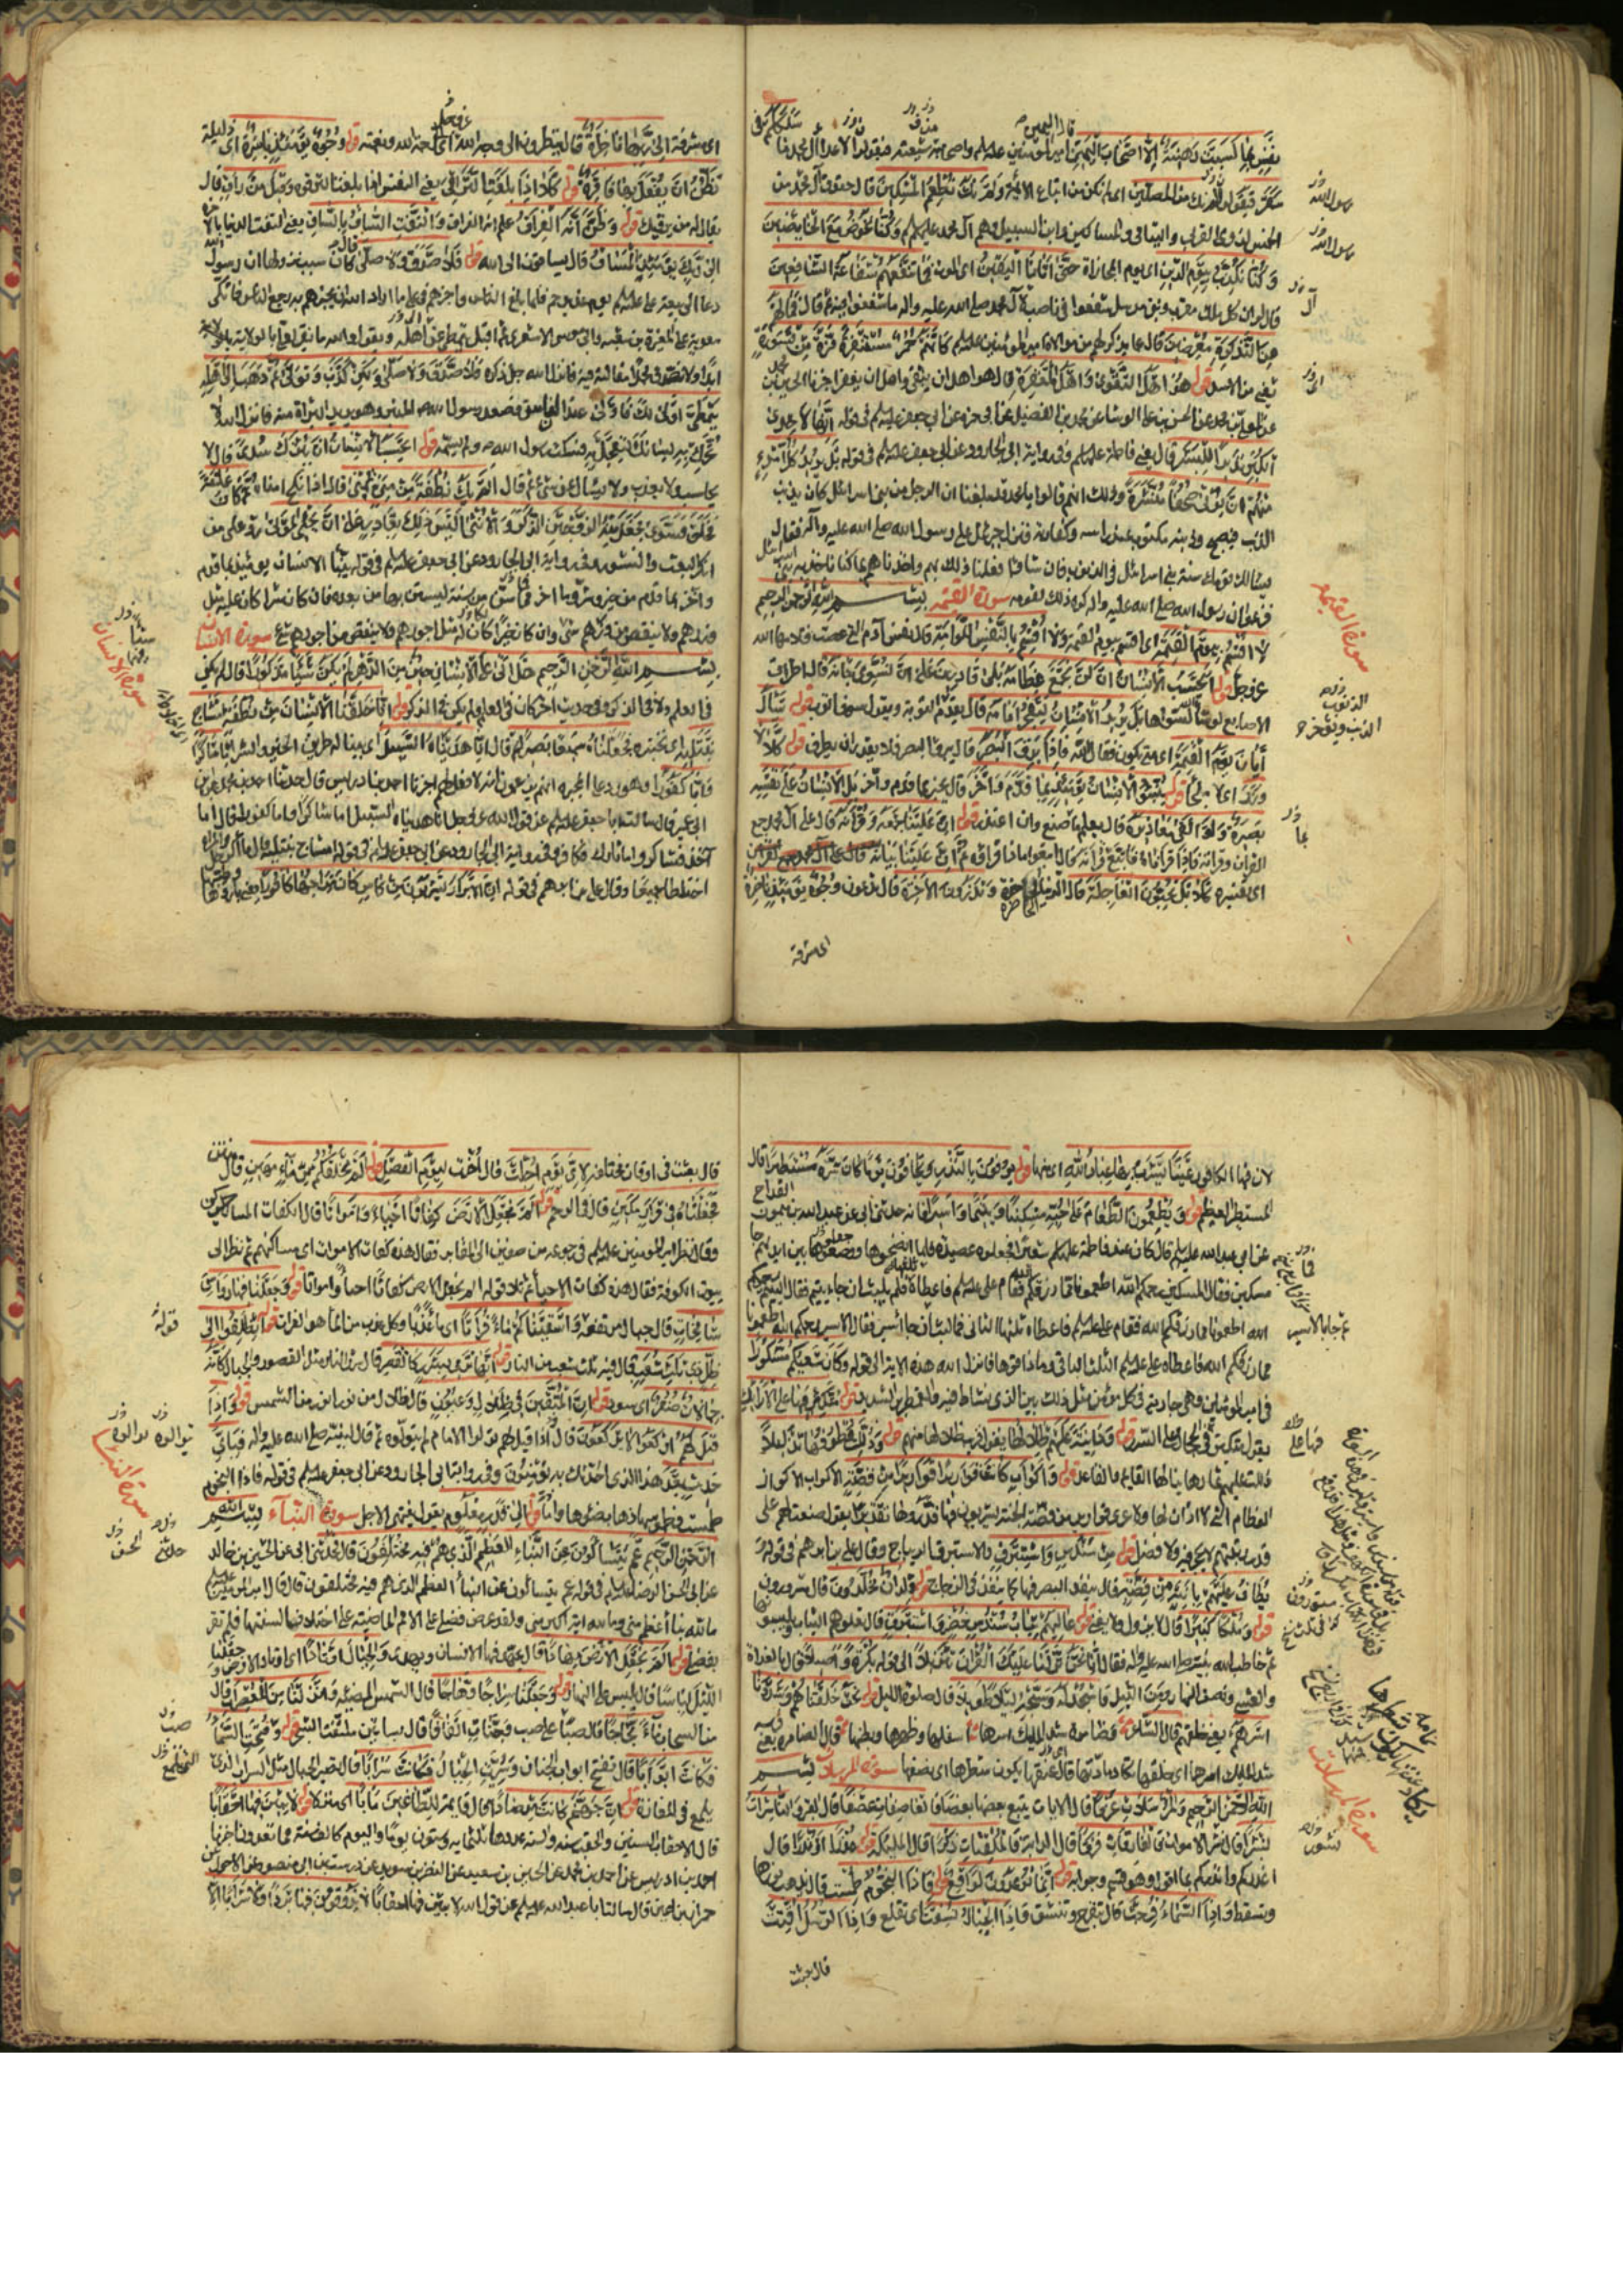 نفس بما كسبت رهينة الا اصحاب اليمين امير المؤمنين عليه واصحابه شيعته فيقولوا لاعداء آل محمد ما
سلككم في
سقر فيقولون لم نك من المصلين اى لم نكن من اتباع الائمة ولم نك نطعم المسكين قال حقوق آل محمد من
الخمس لذوى القربى واليتامى والمساكين وابن السبيل وهم آل محمد عليهم وكنا نخوض مع الخائضين
وكنا نكذب بيوم الدين اى يوم المجازاة حتى اتانا اليقين اى الموت فما تنفعهم شفاعة الشافعين
قال لو ان كل ملك مقرب ونبي مرسل شفعوا في ناصب لآل محمد صلى الله عليه واله ما شفعوا فيه ثم قال فما لهم
عن التذكرة معرضين قال عما يذكر لهم من موالاة امير المؤمنين عليه كانهم حمر مستنفرة فرت من قسورة
يعني من الاسد قوله هو اهل التقوى واهل المغفرة قال هو اهل ان يتقى واهل ان يغفر اخبرنا الحسين بن
عن المعلى بن محمد عن الحسن بن على الوشا عن محمد بن الفضيل عن ابى حمزة عن ابى جعفر عليه في قوله انها لاحدى
الكبر نذيرا للبشر قال يعنى فاطمة عليها وفى رواية ابى الجارود عن ابى جعفر عليه في قوله بل يريد كل امرئ
منهم ان يؤتى صحفا منشرة وذلك انهم قالوا يا محمد قد بلغنا ان الرجل من بنى اسرائيل كان يذنب
الذنب فيصبح وذنبه مكتوب عند راسه وكفارته فنزل جبرئيل على رسول الله صلى الله عليه وآله فقال
يسالك قومك سنة بنى اسرائيل في الذنوب فان شاؤا فعلنا ذلك بهم واخذناهم بما كنا ناخذ به بنى اسرائيل
فزعموا ان رسول الله صلى الله عليه واله كره ذلك لقومه سورة القيمة بسم الله الرحمن الرحيم
لا اقسم بيوم القيمة اى اقسم بيوم القيمة ولا اقسم بالنفس اللوامة قال نفس آدم التي عصت فلامها الله
عز وجل قوله ايحسب الانسان ان لن نجمع عظامه بلى قادرين على ان نسوى بنانه قال اطراف
الاصابع لو شاء الله لسواها بل يريد الانسان ليفجر امامه قال يقدم الذنب ويؤخر التوبة ويقول سوف اتوب قوله يسال
ايان يوم القيمة اى متى يكون فقال الله فاذا برق البصر قال يبرق البصر فلا يقدر ان يطرف قوله كلا لا
وزر اى لا ملجأ قوله ينبؤ الانسان يومئذ بما قدم واخر قال يخبر بما قدم واخر بل الانسان على نفسه
بصيرة ولو القى معاذيره قال يعلم ما صنع وان اعتذر قوله ان علينا جمعه وقرآنه قال على آل محمد جمع
القران وقرائته فاذا قرأناه فاتبع قرآنه قال اتبعوا ماذا قراؤه ثم ان علينا بيانه
اى تفسيره كلا بل تحبون العاجلة قال الدنيا الحاضرة وتذرون الاخرة قال تدعون وجوه يومئذ ناضرة
اى مشرقة
رسول الله
رسول الله
آل
اى
سورة القيمة
بما
اى مشرقة الى ربها ناظرة قال ينظرون الى وجه الله اى رحمة الله ونعمته قوله وجوه يومئذ باسرة اى ذليلة
تظن ان يفعل بها فاقرة قوله كلا اذا بلغت التراقى يعنى النفس اذا بلغت الترقوة وقيل من راق قال
يقال له من يرقيك قوله وظن انه الفراق علم انه الفراق والتفت الساق بالساق يعنى التفت الدنيا بالاخرة
الى ربك يومئذ المساق قال يساقون الى الله قوله فلا صدق ولا صلى كان سبب نزولها ان رسول الله
دعا الى بيعة على عليه يوم غدير خم فلما بلغ الناس واخبرهم في على ما اراد الله ان يخبرهم به رجع الناس فاتكى
معوية على المغيرة بن شعبة وابى موسى الاشعرى ثم اقبل يتمطى نحو اهله ويقول والله ما نقر لعلى بالولاية
ابدا ولا نصدق محمدا مقالته فيه فانزل الله جل ذكره فلا صدق ولا صلى ولكن كذب وتولى ثم ذهب الى اهله
يتمطى اولى لك فاولى عبد الفاسق فصعد رسول الله المنبر وهو يريد البراءة منه فانزل الله لا
تحرك به لسانك لتعجل به فسكت رسول الله ولم يسمه قوله ايحسب الانسان ان يترك سدى قال لا
يحاسب ولا يعذب ولا يسال عن شئ ثم قال الم يك نطفة من منى تمنى قال اذا نكح امناه ثم كان علقة
فخلق فسوى فجعل منه الزوجين الذكر والانثى اليس ذلك بقادر على ان يحيى الموتى رد على من
انكر البعث والنشور وفى رواية ابى الجارود عن ابى جعفر عليه في قوله ينبؤا الانسان يومئذ بما قدم
واخر بما قدم من خير وشر وما اخر فما سن من سنة ليستن بها من بعده فان كان شرا كان عليه مثل
وزرهم ولا ينقص من وزرهم شئ وان كان خيرا كان له مثل اجورهم ولا ينقص من اجورهم شئ سورة الانسان
بسم الله الرحمن الرحيم هل اتى على الانسان حين من الدهر لم يكن شيئا مذكورا قال لم يكن
في العلم ولا في الذكر وفى حديث اخر كان في العلم ولم يكن في الذكر قوله انا خلقنا الانسان من نطفة امشاج
نبتليه اى نختبره فجعلناه سميعا بصيرا ثم قال انا هديناه السبيل اى بينا له طريق الخير والشر اما شاكرا
واما كفورا وهو رد على المجبرة انهم يزعمون انه لا فعل لهم اخبرنا احمد بن ادريس قال حدثنا احمد بن محمد عن ابن
ابى عمير قال سالت ابا جعفر عليه عن قول الله عز وجل انا هديناه السبيل اما شاكرا واما كفورا قال اما
آخذ فشاكر واما تارك فكافر وفى رواية ابى الجارود عن ابى جعفر عليه في قوله امشاج نبتليه قال
اختلطا جميعا وقال على بن ابرهيم في قوله ان الابرار يشربون من كاس كان مزاجها كافورا
سورة الانسان
لان فيها الكافور عينا يشرب بها عباد الله اى منها قوله يوفون بالنذر ويخافون يوما كان شره مستطيرا قال
المستطير العظيم قوله ويطعمون الطعام على حبه مسكينا ويتيما واسيرا فانه حدثنى ابى عن عبد الله بن ميمون القداح
عن ابى عبد الله عليه قال كان عند فاطمة عليها شعير فجعلوه عصيدة فلما انضجوها ووضعوها بين ايديهم جاء
مسكين فقال المسكين رحمكم الله اطعمونا مما رزقكم الله فقام على عليه فاعطاه ثلثها فلم يلبث ان جاء يتيم فقال اليتيم رحمكم
الله اطعمونا مما رزقكم الله فقام على عليه فاعطاه ثلثها الثانى فما لبث ان جاء اسير فقال الاسير رحمكم الله اطعمونا
مما رزقكم الله فاعطاه على عليه الثلث الباقى وما ذاقوها فانزل الله هذه الاية الى قوله وكان سعيكم مشكورا
في امير المؤمنين وهى جارية في كل مؤمن فعل مثل ذلك
يقول متكئين في الحجال على السرر قوله ودانية عليهم ظلالها يقول قريب ظلالها منهم قوله وذللت قطوفها تذليلا
دليت عليهم ثمارها ينالها القائم والقاعد قوله واكواب كانت قواريرا قواريرا من فضة الاكواب الاكواز
العظام التي لا اذان لها ولا عرى قوارير من فضة الجنة يشربون فيها قدروها تقديرا يقول صنعت لهم على
قدر رتبتهم لا تحجير فيه ولا فضل قوله من سندس واستبرق الاستبرق الديباج وقال على بن ابرهيم في قوله
يطاف عليهم بانية من فضة قال ينفد البصر فيها كما ينفد في الزجاج قوله ولدان مخلدون قال مسورون
قوله وملكا كبيرا قال لا يزول ولا يفنى قوله عاليهم ثياب سندس خضر واستبرق قال تعلوهم الثياب ويلبسونها
ثم خاطب الله نبيه صلى الله عليه واله فقال انا نحن نزلنا عليك القران تنزيلا الى قوله بكرة واصيلا قال بالغداة
والعشى ونصف النهار ومن الليل فاسجد له وسبحه ليلا طويلا قال صلوة الليل قوله نحن خلقناهم وشددنا
اسرهم يعنى خلقهم قال الشاعر
سورة المرسلات بسم
الله الرحمن الرحيم والمرسلات عرفا قال الايات يتبع بعضها بعضا فالعاصفات عصفا قال القبر والناشرات
نشرا قال نشر الاموات فالفارقات فرقا قال الدابة فالملقيات ذكرا قال الملئكة قوله عذرا او نذرا قال
اعذركم وانذركم بما اقول وهو قسم وجوابه قوله انما توعدون لواقع قوله فاذا النجوم طمست قال يذهب نورها
وتسقط واذا السماء فرجت قال تنفرج وتنشق واذا الجبال نسفت اى تقلع واذا الرسل اقتت
قال بعثت
سورة المرسلات
قال بعثت في اوقات مختلفة لاى يوم اجلت قال اخرت ليوم الفصل قوله الم نخلقكم من ماء مهين قال منتن
فجعلناه في قرار مكين قال في الرحم قوله الم نجعل الارض كفاتا احياء وامواتا قال الكفات المساكن
وقال نظر امير المؤمنين عليه في رجوعه من صفين الى المقابر فقال هذه كفات الاموات اى مساكنهم ثم نظر الى
بيوت الكوفة فقال هذه كفات الاحياء ثم تلا قوله الم نجعل الارض كفاتا احياء وامواتا قوله وجعلنا فيها رواسى
شامخات قال جبال مرتفعة واسقيناكم ماء فراتا اى عذبا وكل عذب من الماء هو الفرات قوله انطلقوا الى
ظل ذى ثلث شعب قال فيه ثلث شعب من النار قوله انها ترمى بشرر كالقصر قال شرر النار مثل القصور والجبال كانه
جمالات صفر اى سود قوله ان المتقين في ظلال وعيون قال ظلال من نور انور من الشمس قوله واذا
قيل لهم اركعوا لا يركعون قال اذا قيل لهم تولوا الامام لم يتولوه ثم قال لنبيه صلى الله عليه واله فباى
حديث بعد هذا الذى احدثك به يؤمنون وفى رواية ابى الجارود عن ابى جعفر عليه في قوله فاذا النجوم
طمست فطموسها ذهاب ضوئها واما قوله الى قدر معلوم يقول منتهى الاجل سورة النبأ بسم الله
الرحمن الرحيم عم يتسائلون عن النباء العظيم الذى هم فيه مختلفون قال حدثنى ابى عن الحسين بن خالد
عن ابى الحسن الرضا عليه في قوله عم يتسائلون عن النبأ العظيم الذى هم فيه مختلفون قال قال امير المؤمنين عليه
ما لله نبأ اعظم منى وما لله اية اكبر منى ولقد عرض فضلى على الامم الماضية على اختلاف السنتها فلم تقر
بفضلى قوله الم نجعل الارض مهادا قال يمهد فيها الانسان ويهدى والجبال اوتادا اى اوتاد الارض وجعلنا
الليل لباسا قال يلبس على النهار قوله وجعلنا سراجا وهاجا قال الشمس المضيئة وانزلنا من المعصرات قال
من السحاب ماء ثجاجا قال صبا على صب وجنات الفافا قال بساتين ملتفة الشجر قوله وفتحت السماء
فكانت ابوابا قال تفتح ابواب الجنان وسيرت الجبال فكانت سرابا قال تصير الجبال مثل السراب الذى
يلمع في المفازة قوله ان جهنم كانت مرصادا قال قائمة للطاغين مآبا اى منزلا قوله لابثين فيها احقابا
قال الاحقاب السنين والحقب سنة والسنة عددها ثلثمائة وستون يوما واليوم كالف سنة مما تعدون اخبرنا
احمد بن ادريس عن احمد بن محمد عن الحسين بن سعيد عن النضر بن سويد عن درست بن ابى منصور عن الاحول عن
حمران بن اعين قال سالت ابا عبد الله عليه عن قول الله لابثين فيها احقابا لا يذوقون فيها بردا ولا شرابا الا
قوله
سورة النبأ